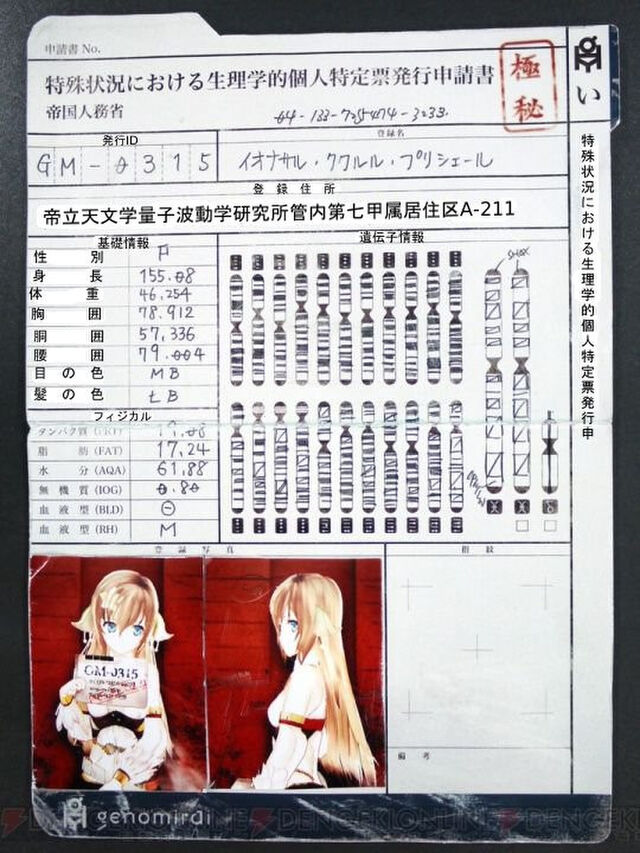 申請書 No.
特殊状況における生理学的個人特定票発行申請書
帝国人務省
極秘
い
特殊状況における生理学的個人特定票発行申
発行ID
GM-0315
登録名
イオナサル・ククルル・プリシェール
登録住所
帝立天文学量子波動学研究所管内第七甲属居住区A-211
基礎情報
性別 F
身長 155.08
体重 46.254
胸囲 78.912
胴囲 57.336
腰囲 79.004
目の色 MB
髪の色 LB
フィジカル
タンパク質
脂肪(FAT) 17.24
水分(AQA) 61.88
無機質(IOG) 0.80
血液型(BLD) O
血液型(RH) M
遺伝子情報
SHOX
登録写真
GM-0315
指紋
備考
genomirai
DENGEKI ONLINE